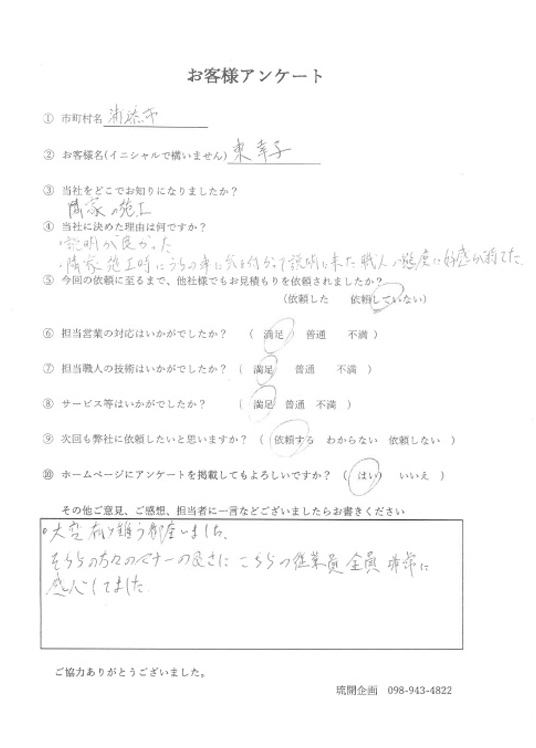 お客様アンケート
① 市町村名 浦添市
② お客様名(イニシャルで構いません) 東 幸子
③ 当社をどこでお知りになりましたか？
隣家の施工
④ 当社に決めた理由は何ですか？
・説明が良かった
・隣家施工時にうちの車に気を付かって説明に来た職人の態度に好感が持てた
⑤ 今回の依頼に至るまで、他社様でもお見積もりを依頼されましたか？
(依頼した 依頼していない)
⑥ 担当営業の対応はいかがでしたか？ ( 満足 普通 不満 )
⑦ 担当職人の技術はいかがでしたか？ ( 満足 普通 不満 )
⑧ サービス等はいかがでしたか？ ( 満足 普通 不満 )
⑨ 次回も弊社に依頼したいと思いますか？ ( 依頼する わからない 依頼しない )
⑩ ホームページにアンケートを掲載してもよろしいですか？ ( はい いいえ )
その他ご意見、ご感想、担当者に一言などございましたらお書きください
・大変有り難う御座いました、
そちらの方々のマナーの良さに こちらの従業員 全員 非常に
感心してました
ご協力ありがとうございました。
琉開企画 098-943-4822